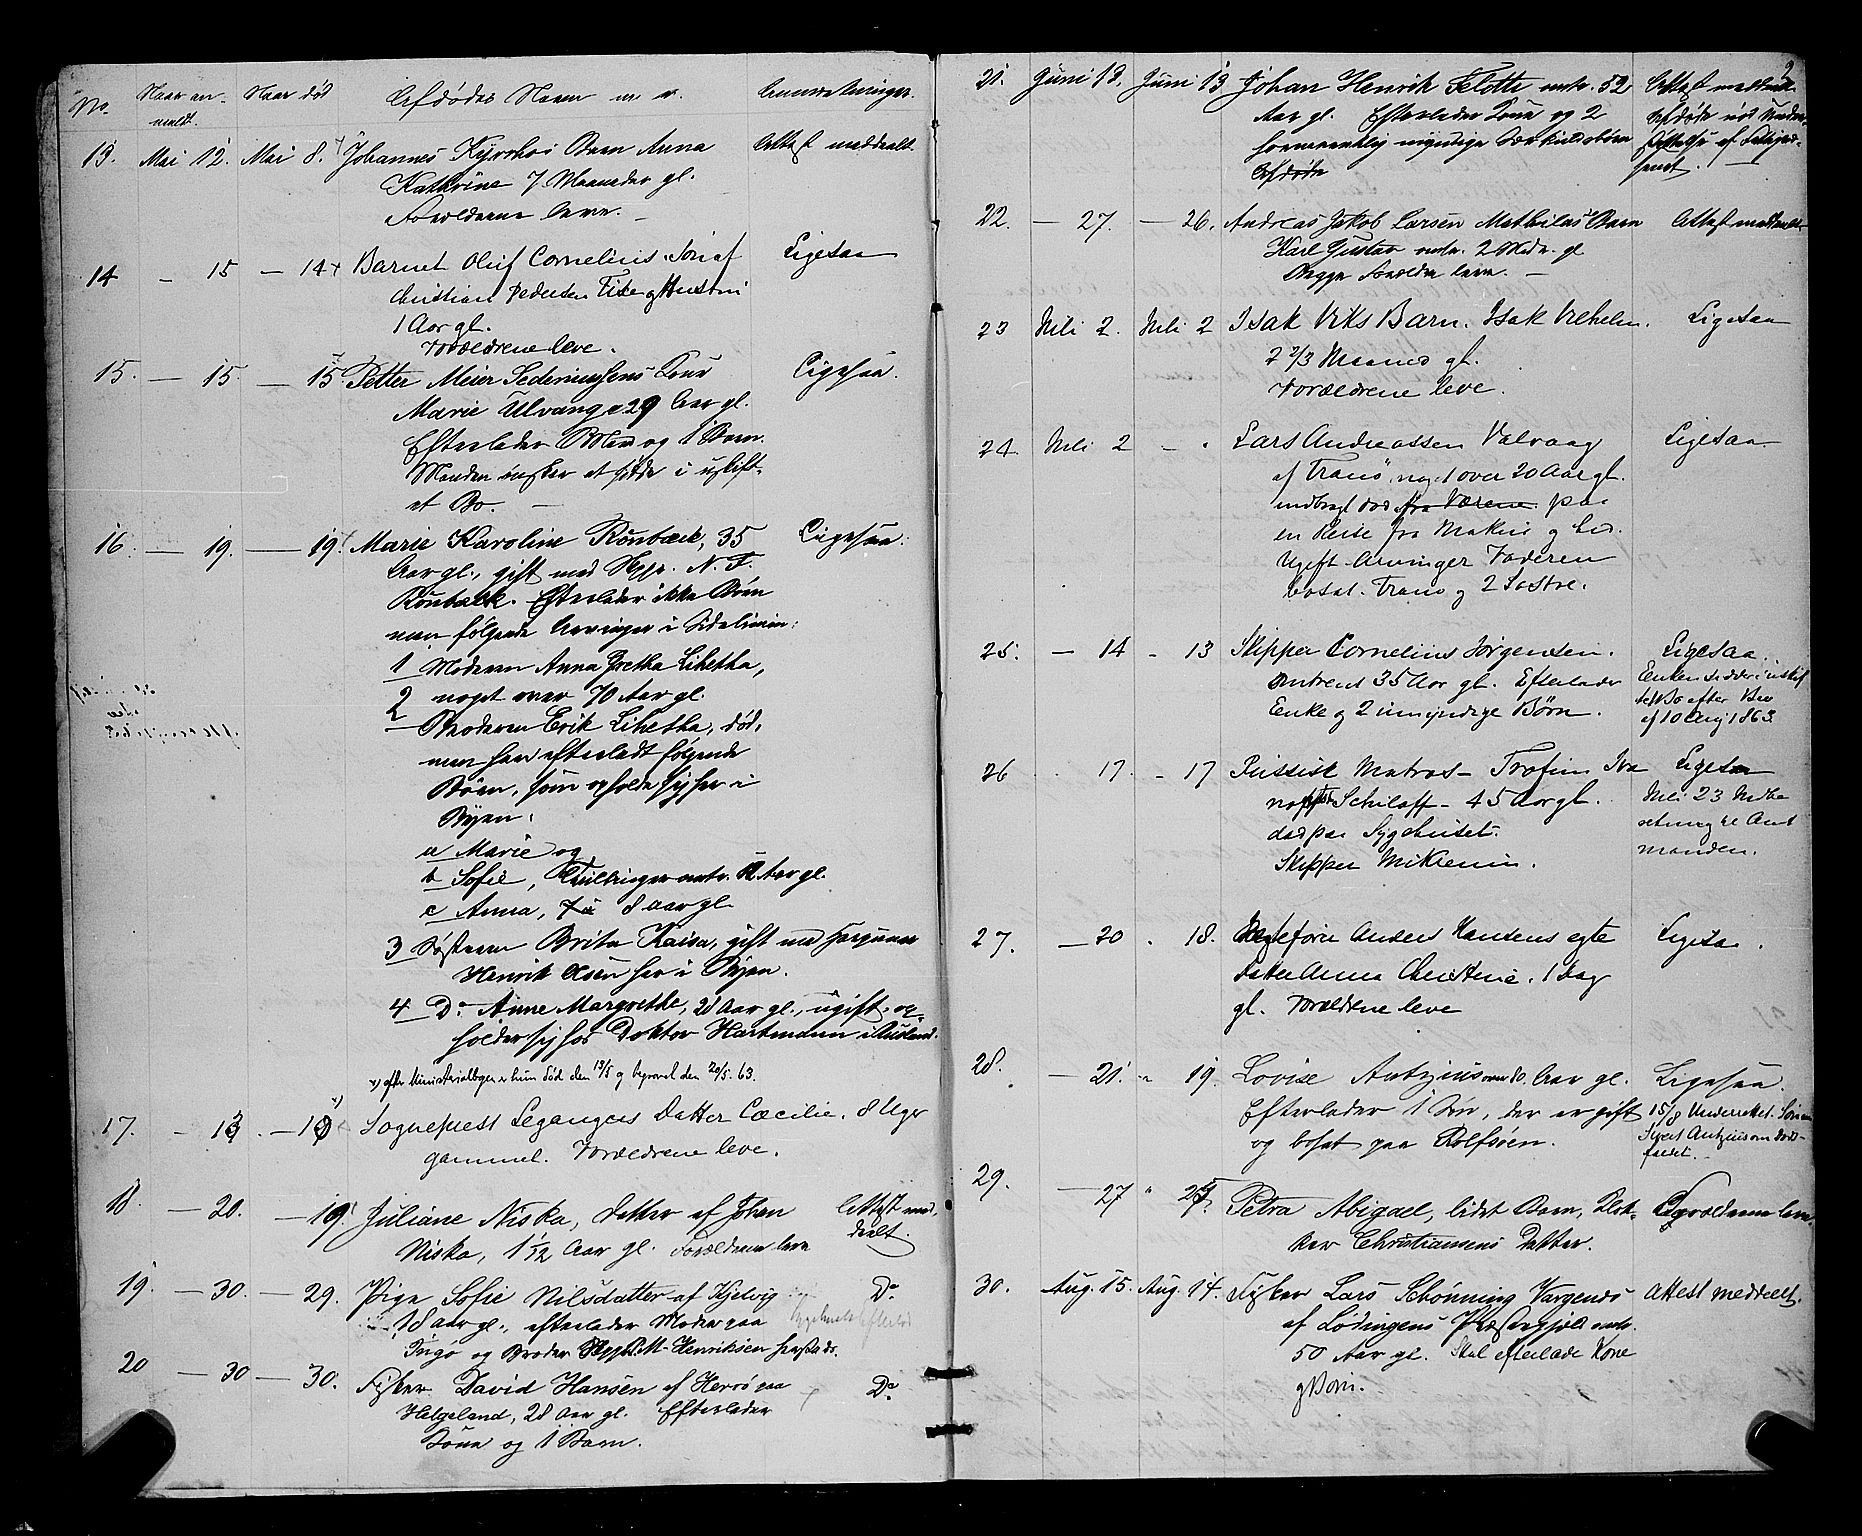 No. Naar an- Naar død Afdødes Navn m. v. Anmærkninger.
meldt.
13. Mai 12. Mai 8. Johannes Kyrrhos Barn Anna Attest meddeelt.
Kathrine 7 Maaneder gl.
Forældrene leve. —
14 — 15 — 14 Barnet Oluf Cornelius Søn af Ligesaa
Christian Pedersen Fisker Hustru
1 Aar gl.
Forældrene leve.
15. — 15. — 15 Petter Meier Sederiussens Kone Ligesaa.
Marie Ulvang 29 Aar gl.
Efterlader Mand og 1 Barn.
Manden ønsker at sidde i uskift-
et Bo. —
16. — 19. — 19. Marie Karoline Rönbæck, 35 Ligesaa.
Aar gl., gift med N. F.
Rönbæck. Efterlader ikke Børn
men følgende Arvinger i Sidelinien:
1 Moderen Anna Gretha Lihetha,
noget over 70 Aar gl.
2 Broderen Erik Lihetha, død,
men har efterladt følgende
Børn, som opholde sig her i
Byen:
a Marie og
b Sofie, Tvillinger omtr. 12 Aar gl.
c Anna, 7 à 8 aar gl.
3 Søsteren Brita Kaisa, gift med
Henrik Olsen her i Byen.
4 Do Anne Margrethe, 21 Aar gl., ugift, op-
holder sig hos Doktor Hartmann i Rusland.
x) efter Ministerialbogen er hun død den 13/5 og begravet den 20/5. 63.
17. — 19. — 18 Sognepræst Legangers Datter Cæcilie. 8 Uger
gammel. Forældrene leve.
18. — 20. — 19 Juliane Niska, Datter af Johan Attest med-
Niska, 1 1/12 Aar gl. Forældrene leve deelt.
19. — 30. — 29. Pige Sofie Nilsdatter af Kjelvig Do
18 aar gl., efterlader Moder paa
Ingø og Broder P. M. Henriksen hersteds.
20 — 30 — 30. Fisker David Hansen af Herrö paa Do
Helgeland, 28 Aar gl. Efterlader
Kone og 1 Barn.
2
21. Juni 18. Juni 13 Johan Henrik Flotti omtr. 52 Attest meddeelt
Aar gl. Efterlader Kone og 2
formeentlig myndige Særkuldsbørn
Afdøde
22. — 27. — 26. Andreas Jakob Larsen Mathilas Barn Attest meddeelt.
Karl Gustav omtr. 2 Mdr. gl
Begge Forældre leve. —
23 Juli 2. Juli 2 Isak Viks Barn. Isak Vilhelm. Ligesaa
2 2/3 Maaned gl.
Forældrene leve.
24. Juli 2 — Lars Andreassen Valvaag Ligesaa
af Tranö, noget over 20 Aar gl.
indbragt død fra Værene paa
en Reise fra Makur og hid.
Ugift. Arvinger Faderen
bosat. Tranö og 2 Søstre.
25. — 14 — 13 Skipper Cornelius Jörgensen. Ligesaa.
omtrent 35 Aar gl. Efterlader Enken sidder i uskif
Enke og 2 umyndige Børn. tet Bo efter Bev
af 10 Aug 1863.
26 17. — 17 Russisk Matros — Trofim Iva Ligesaa
noff Schiloff — 45 Aar gl. Juli 23 Indbe
død paa Sygehuset. retning til Amt
Skipper Mikienin. manden.
27. — 20 18. Anders Hansens egte Ligesaa.
Datter Anna Christine. 1 Dag
gl. Forældrene leve
28. — 21. 19. Lovise Antzius over 80. Aar gl. Ligesaa.
Efterlader 1 Søn, der er gift 15/8 Underrettet. Sönnen
og bosat paa Rolfsöen. Sivert Antzius om Døds-
faldet.
29. — 27 " 25 Petra Abigael, lidet Barn, Klok- Forældrene leve.
ker Christiansens Datter.
30. Aug. 15. Aug. 14. Fisker Lars Schönning Vargenös Attest meddeelt.
af Lødingens Præstegjeld omtr.
50 Aar gl. Skal efterlade Kone
og Børn.